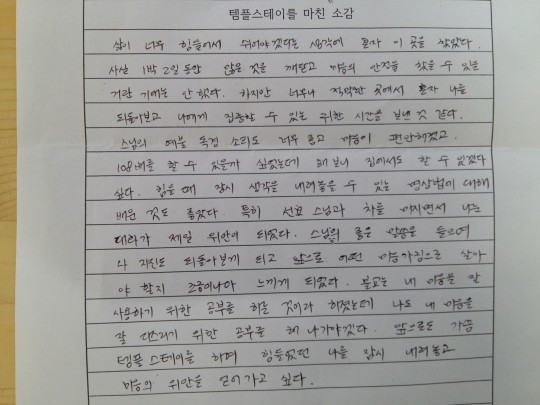 템플스테이를 마친 소감
삶이 너무 힘들어서 쉬어야겠다는 생각에 혼자 이 곳을 찾았다.
사실 1박 2일동안 많은 것을 깨닫고 마음의 안정을 찾을 수 있을
거란 기대는 안 했다. 하지만 너무나 적막한 곳에서 혼자 나를
되돌아보고 나에게 집중할 수 있는 귀한 시간을 보낸 것 같다.
스님의 예불 독경 소리도 너무 좋고 마음이 편안해졌고.
108배를 할 수 있을까 싶었는데 해 보니 집에서도 할 수 있겠다
싶다. 힘들 때 잠시 생각을 내려놓을 수 있는 명상법에 대해
배운 것도 좋았다. 특히 선효 스님과 차를 마시면서 나눈
대화가 제일 위안이 되었다. 스님의 좋은 말씀을 들으며
나 자신도 되돌아보게 되고 앞으로 어떤 마음가짐으로 살아
야 할지 조금이나마 느끼게 되었다. 불교는 내 마음을 잘
사용하기 위한 공부를 하는 것이라 하셨는데 나도 내 마음을
잘 다스리기 위한 공부를 해 나가야겠다. 앞으로도 가끔
템플스테이를 하며 힘들었던 나를 잠시 내려놓고
마음의 위안을 얻어가고 싶다.